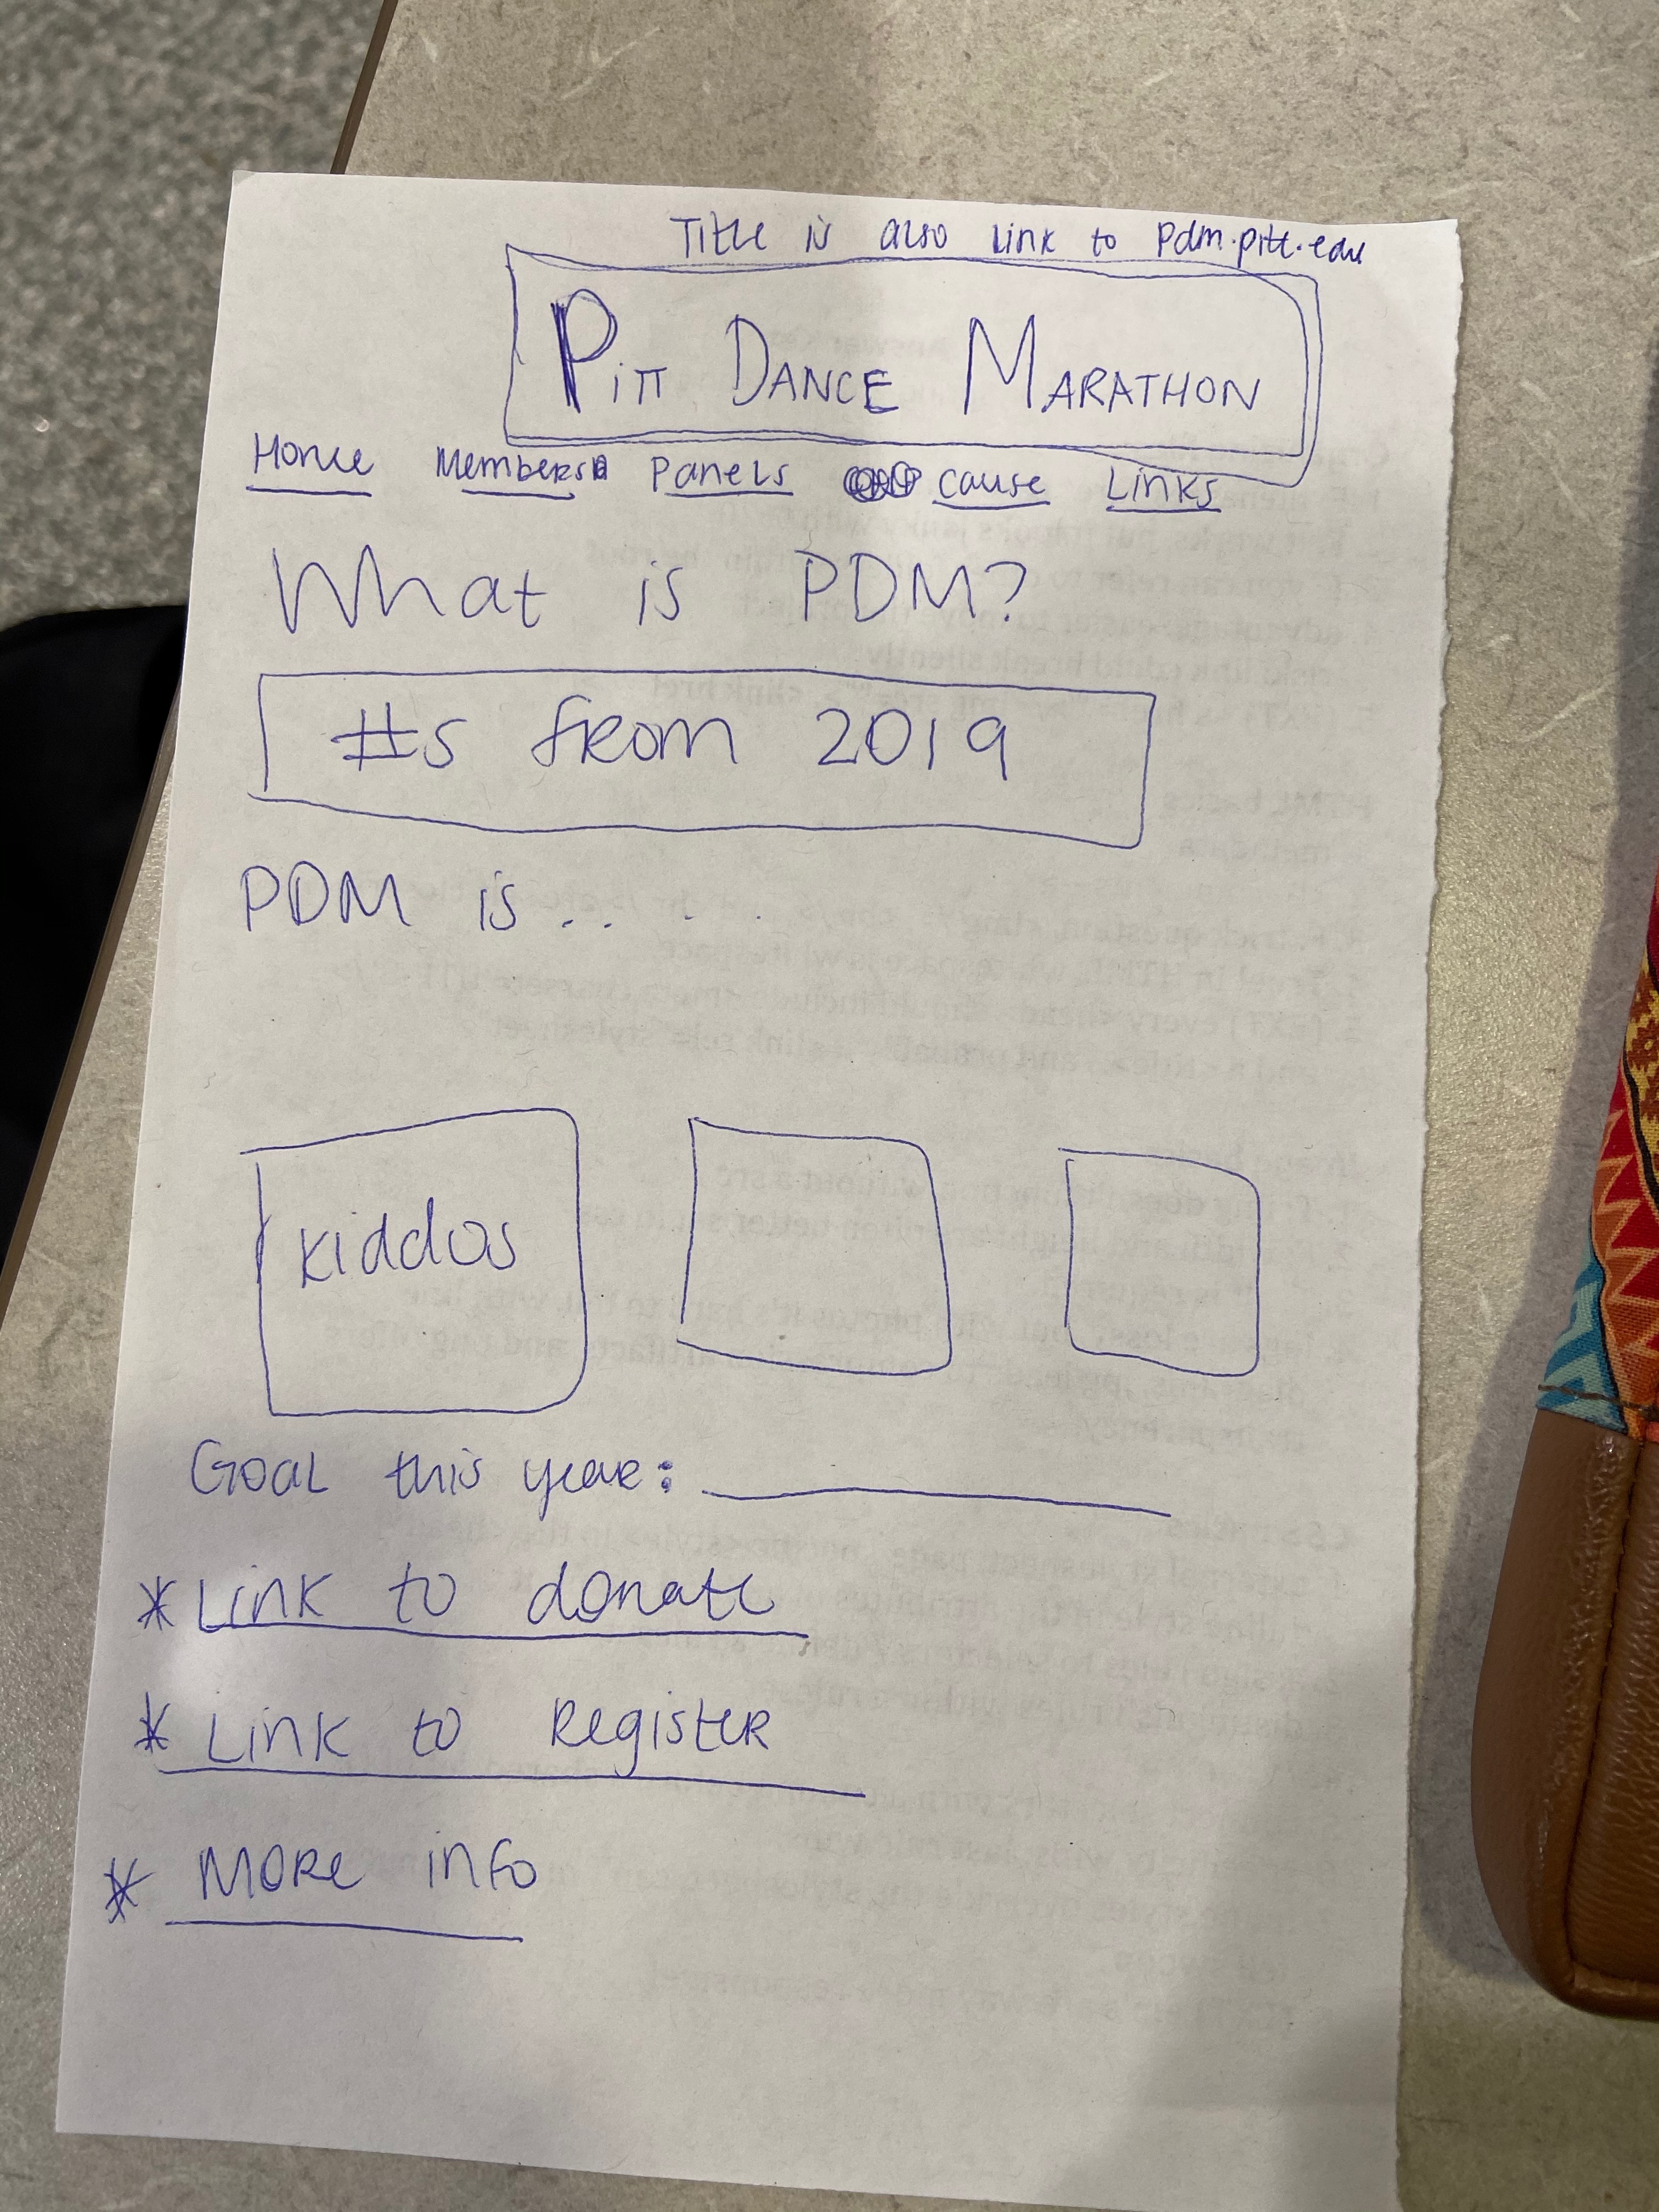 Title is also link to pdm.pitt.edu
PITT DANCE MARATHON
Home Members Panels cause Links
What is PDM?
#s from 2019
PDM is . . . .
kiddos
Goal this year:
* Link to donate
* Link to Register
* More info